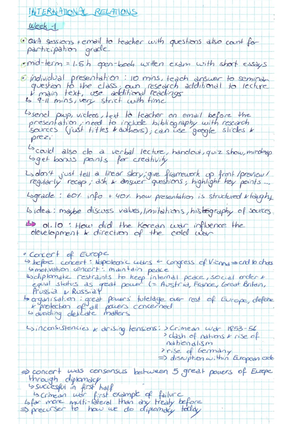 INTERNATIONAL RELATIONS
Week 1
• Q&A sessions + email to teacher with questions also count for
participation grade
• mid-term = 1.5 h open-book written exam with short essays
• individual presentation : 10 mins, teach answer to seminar
question to the class, own research additional to lecture
& main text, use additional readings
↳ 9-11 mins, very strict with time
↳ send pwp, video, txt to teacher on email before the
presentation, need to include bibliography with research
sources (just titles & authors); can use google slides &
prezi
↳ could also do a verbal lecture, handout, quiz show, mindmap
↳ get bonus points for creativity
↳ don't just tell a linear story, give framework up front/preview/
regularly recap, ask & answer questions, highlight key points...
↳ grade : 60% info + 40% how presentation is structured & taught
↳ idea: maybe discuss values, limitations, historiography of sources
01.10 : How did the Korean war influence the
development & direction of the cold war
• Concert of Europe
↳ before concert: Napoleonic wars + Congress of Vienna → end to chaos
↳ motivation concert: maintain peace
↳ diplomatic restraints to keep internal peace, social order &
equal status as great power (= Austria, France, Great Britain,
Prussia & Russia)
↳ organisation : great powers' tutelage over rest of Europe, defense
& protection of all powers concerned
↳ avoiding delicate matters
↳ inconsistencies & driving tensions: > Crimean war 1853-56
> clash of nations & rise of
nationalism
> rise of Germany
⇒ disruption within European
⇒ concert was consensus between 5 great powers of Europe
through diplomacy
↳ successful in first half
↳ Crimean war first example of failure
↳ far more multi-lateral than any treaty before
⇒ precursor to how we do diplomacy today